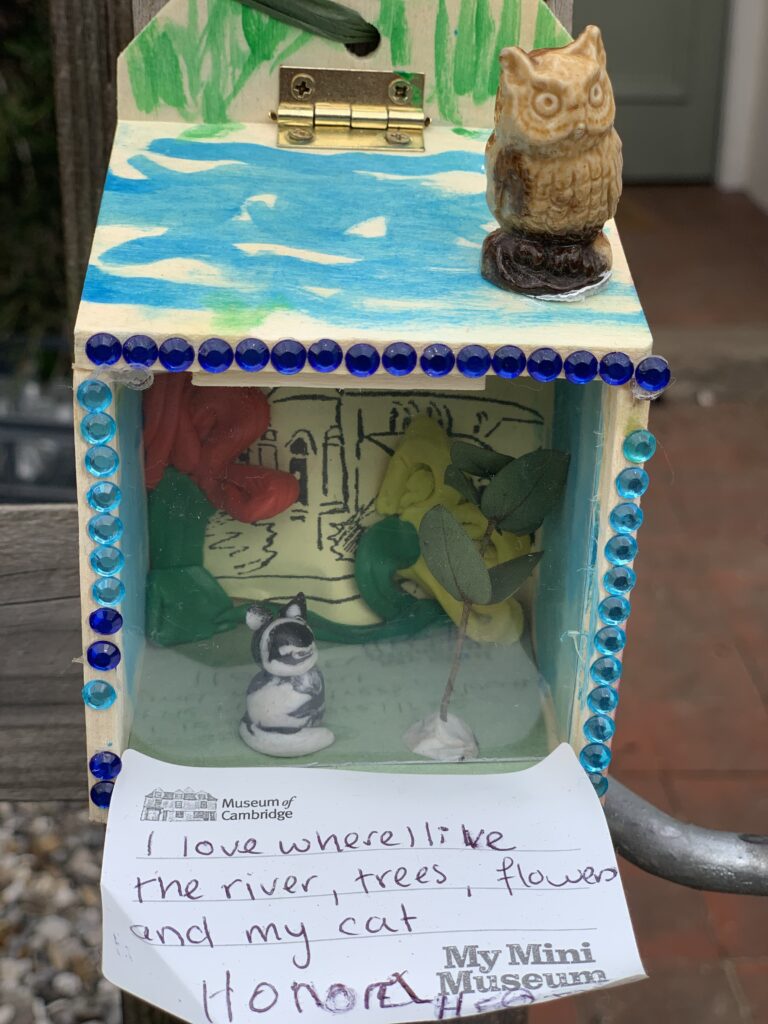 Museum of
Cambridge
I love where I live
the river, trees, flowers
and my cat
My Mini
Museum